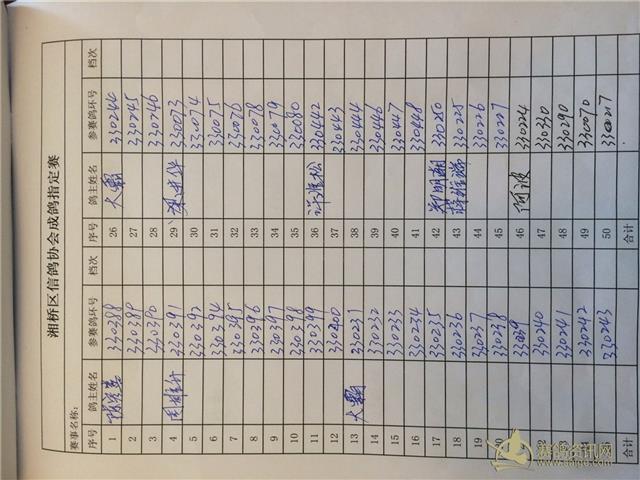 湘桥区信鸽协会成鸽指定赛
赛事名称:
序号 鸽主姓名 参赛鸽环号 档次 序号 鸽主姓名 参赛鸽环号 档次
1 330388 26 大鹏 330244
2 330389 27 330245
3 330390 28 330246
4 330391 29 330073
5 330392 30 330074
6 330394 31 330075
7 330395 32 330076
8 330396 33 330078
9 330397 34 330079
10 330398 35 330080
11 330399 36 330442
12 330400 37 330443
13 大鹏 330231 38 330444
14 330232 39 330446
15 330233 40 330447
16 330234 41 330448
17 330235 42 郑明朝 330250
18 330236 43 330225
19 330237 44 330226
20 330238 45 330227
330239 46 何波 330224
330240 47 330330
330241 48 330290
330242 49 330070
330243 50 330217
合计 合计
赛鸽资讯网
www.saige.com